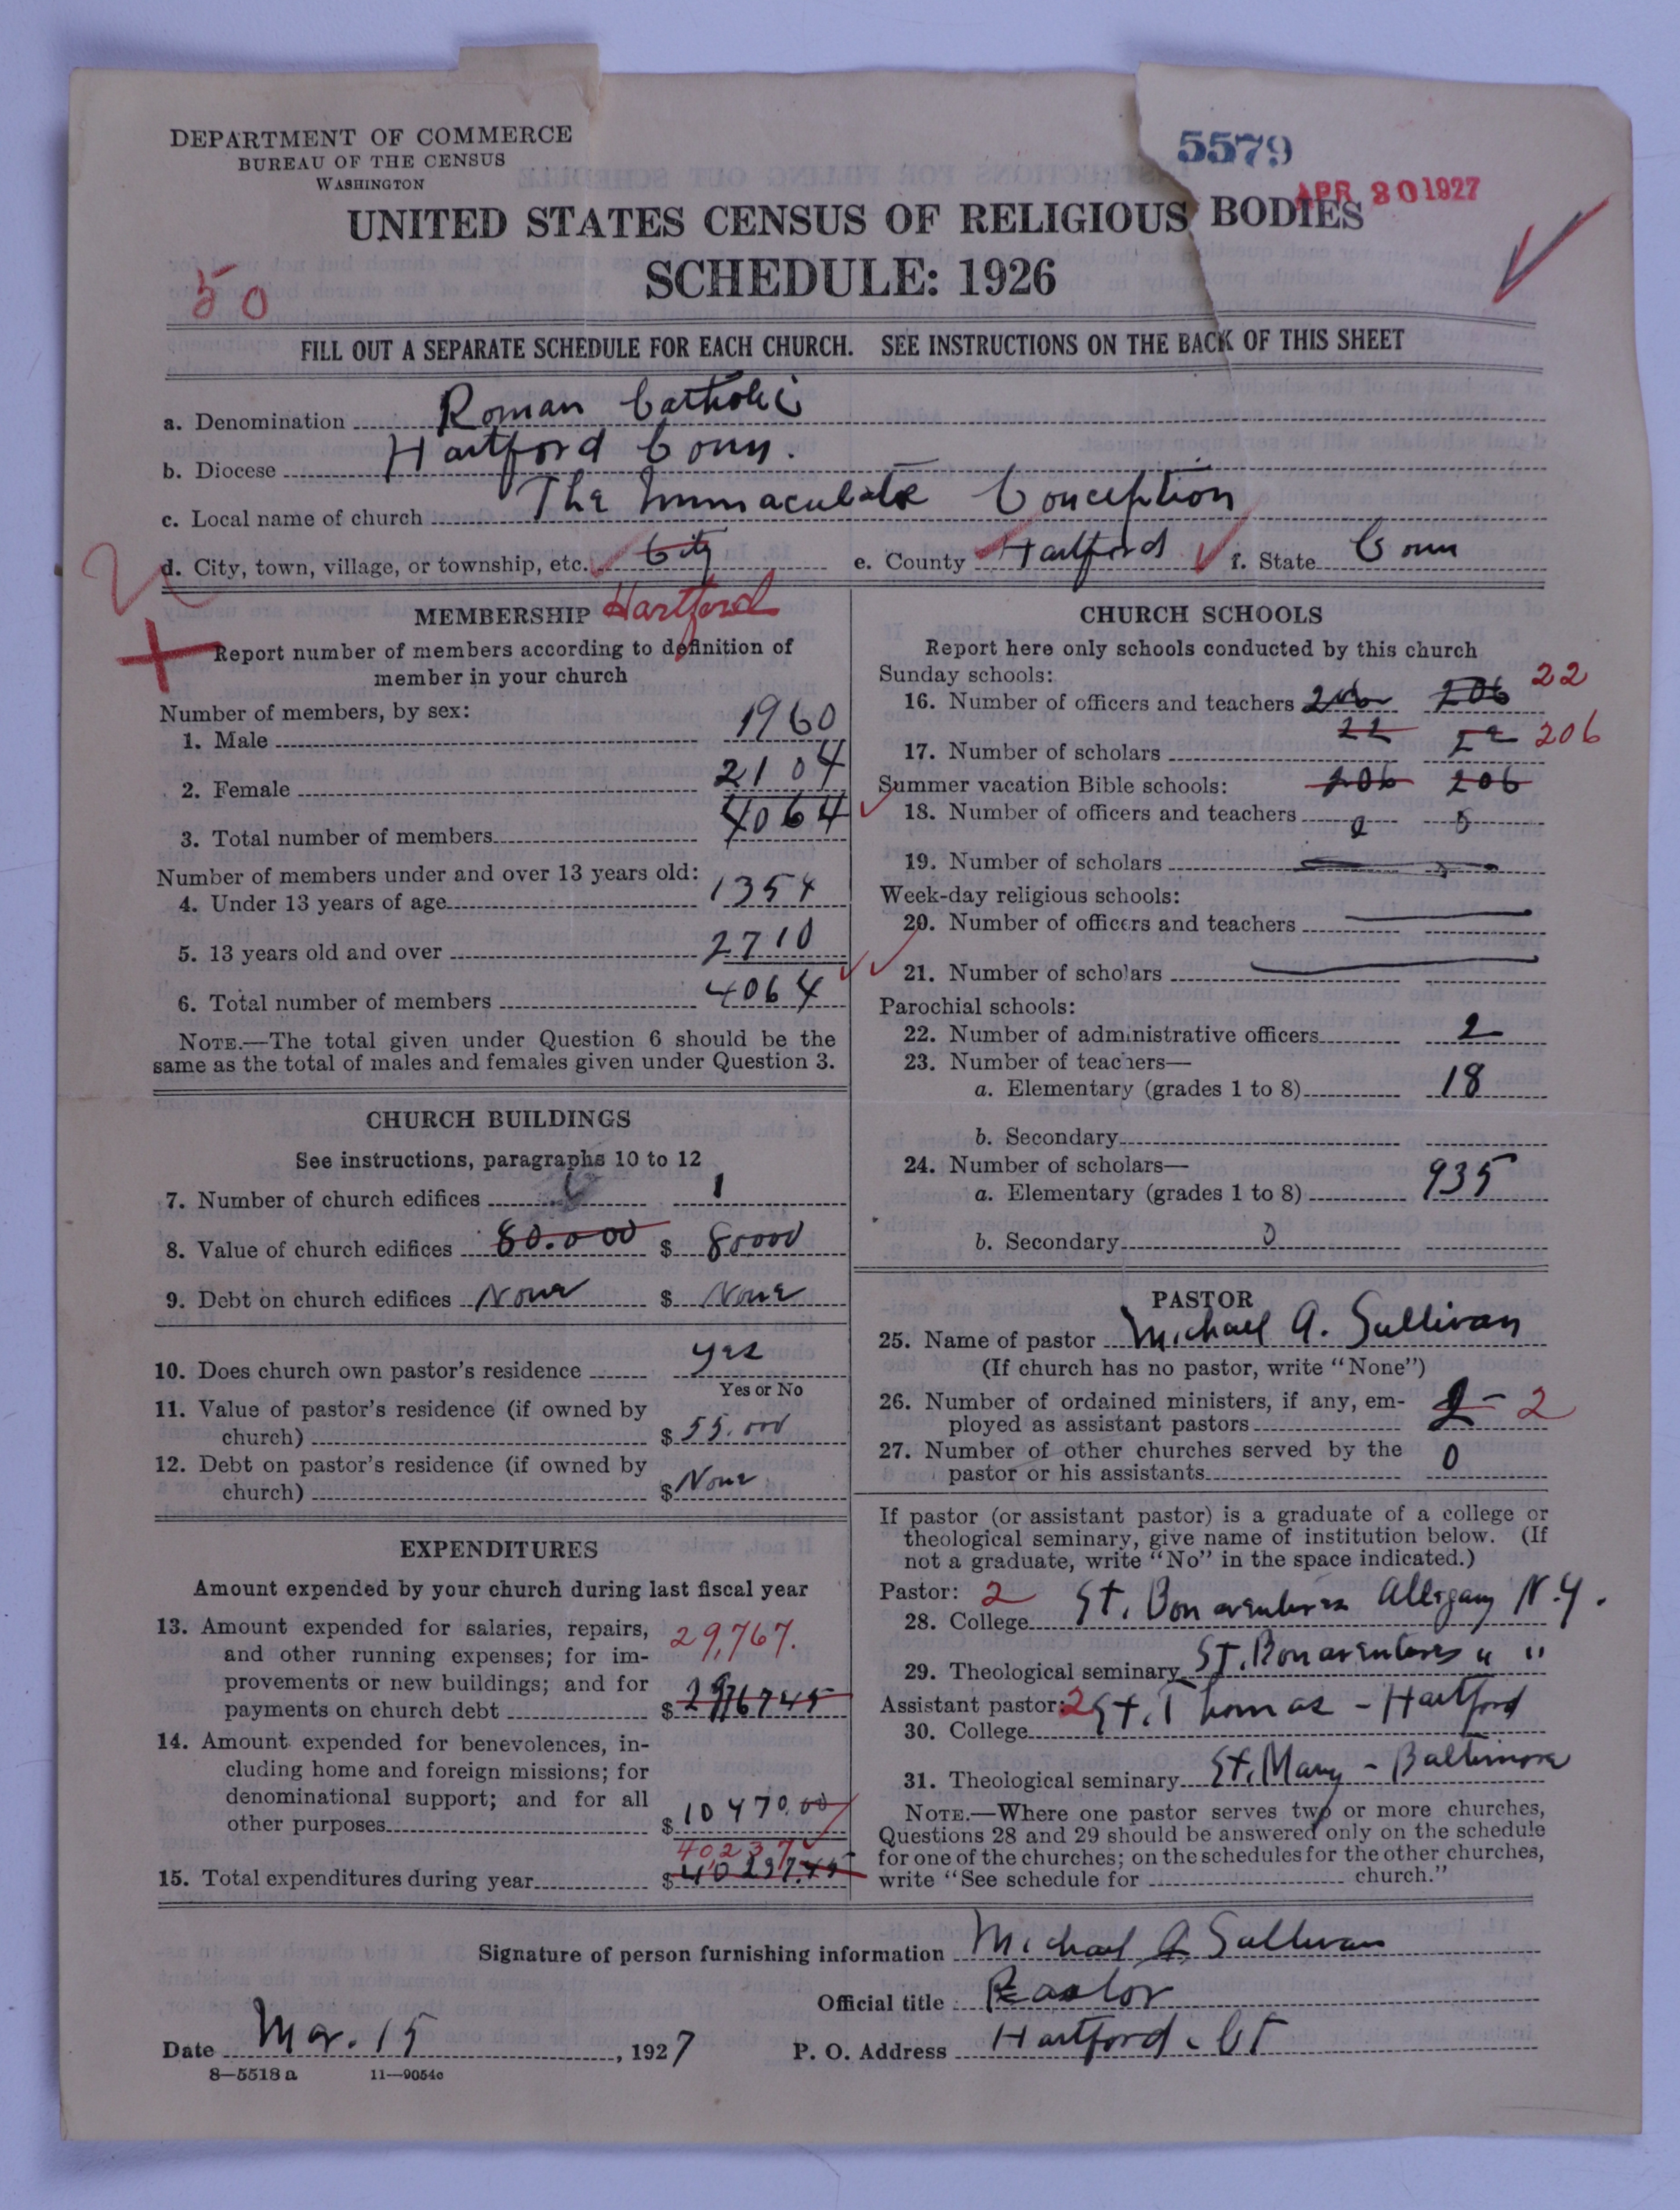 DEPARTMENT OF COMMERCE
BUREAU OF THE CENSUS
WASHINGTON
5579
APR 30 1927
UNITED STATES CENSUS OF RELIGIOUS BODIES
SCHEDULE: 1926
50
FILL OUT A SEPARATE SCHEDULE FOR EACH CHURCH. SEE INSTRUCTIONS ON THE BACK OF THIS SHEET
a. Denomination Roman Catholic
b. Diocese Hartford Conn.
c. Local name of church The Immaculate Conception
d. City, town, village, or township, etc. City e. County Hartford f. State Conn
2
MEMBERSHIP Hartford
Report number of members according to definition of
member in your church
Number of members, by sex:
1. Male 1960
2. Female 2104
3. Total number of members 4064
Number of members under and over 13 years old:
4. Under 13 years of age 1354
5. 13 years old and over 2710
6. Total number of members 4064
NOTE.—The total given under Question 6 should be the
same as the total of males and females given under Question 3.
CHURCH BUILDINGS
See instructions, paragraphs 10 to 12
7. Number of church edifices 1
8. Value of church edifices 80.000 $ 80000
9. Debt on church edifices None $ None
10. Does church own pastor's residence yes
Yes or No
11. Value of pastor's residence (if owned by
church) $ 55.000
12. Debt on pastor's residence (if owned by
church) $ None
EXPENDITURES
Amount expended by your church during last fiscal year
13. Amount expended for salaries, repairs,
and other running expenses; for im-
provements or new buildings; and for
payments on church debt $ 29,767.
2976745
14. Amount expended for benevolences, in-
cluding home and foreign missions; for
denominational support; and for all
other purposes $ 10470.00
40,237
15. Total expenditures during year $ 40237.45
CHURCH SCHOOLS
Report here only schools conducted by this church
Sunday schools:
16. Number of officers and teachers 206 206 22
17. Number of scholars 22 206
Summer vacation Bible schools: 206 206
18. Number of officers and teachers 0 0
19. Number of scholars
Week-day religious schools:
20. Number of officers and teachers
21. Number of scholars
Parochial schools:
22. Number of administrative officers 2
23. Number of teachers—
a. Elementary (grades 1 to 8) 18
b. Secondary
24. Number of scholars—
a. Elementary (grades 1 to 8) 935
b. Secondary 0
PASTOR
25. Name of pastor Michael A. Sullivan
(If church has no pastor, write "None")
26. Number of ordained ministers, if any, em-
ployed as assistant pastors 2 – 2
27. Number of other churches served by the
pastor or his assistants 0
If pastor (or assistant pastor) is a graduate of a college or
theological seminary, give name of institution below. (If
not a graduate, write "No" in the space indicated.)
Pastor: 2
28. College St. Bonaventures Allegany N.Y.
29. Theological seminary St. Bonaventures " "
Assistant pastor: 2
30. College St. Thomas – Hartford
31. Theological seminary St. Mary – Baltimore
NOTE.—Where one pastor serves two or more churches,
Questions 28 and 29 should be answered only on the schedule
for one of the churches; on the schedules for the other churches,
write "See schedule for church."
Signature of person furnishing information Michael A Sullivan
Official title Pastor
Date Mar. 15, 1927 P. O. Address Hartford. Ct
8—5518 a 11—9054c